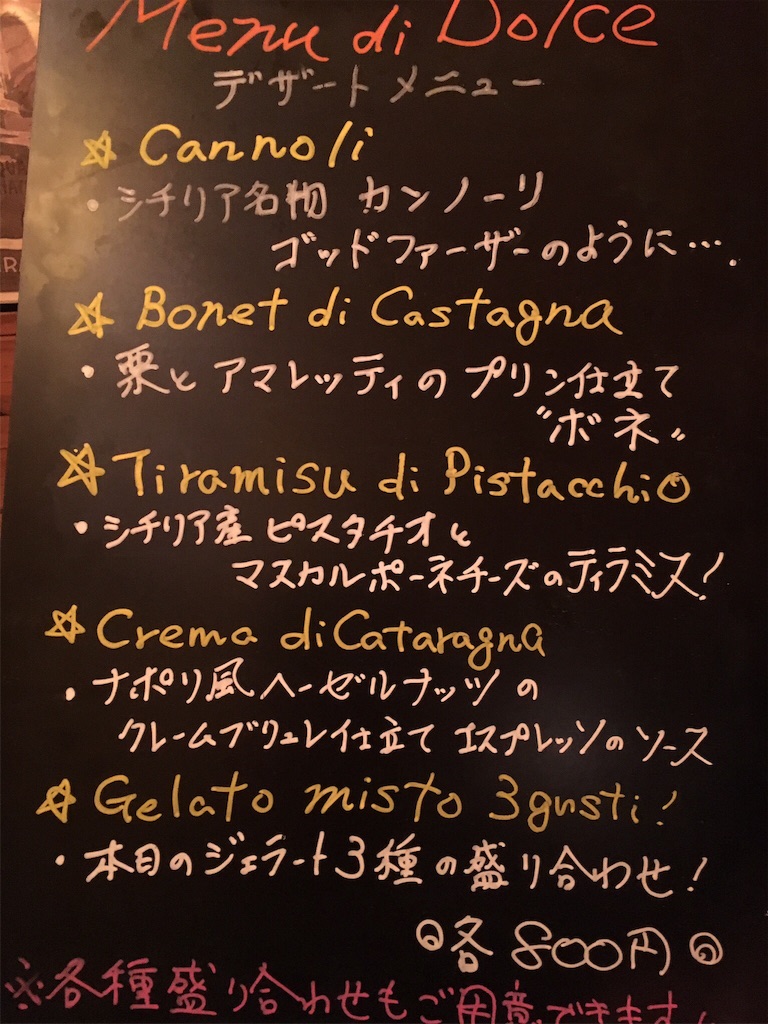 Menu di Dolce
デザートメニュー
☆ Cannoli
・シチリア名物 カンノーリ
ゴッドファーザーのように….
☆ Bonet di Castagna
・栗とアマレッティのプリン仕立て
"ボネ"
☆ Tiramisu di Pistacchio
・シチリア産ピスタチオと
マスカルポーネチーズのティラミス!
☆ Crema di Cataragna
・ナポリ風ヘーゼルナッツの
クレームブリュレイ仕立て エスプレッソのソース
☆ Gelato misto 3gusti!
・本日のジェラート3種の盛り合わせ!
◎各 800円◎
※各種盛り合わせもご用意できます!